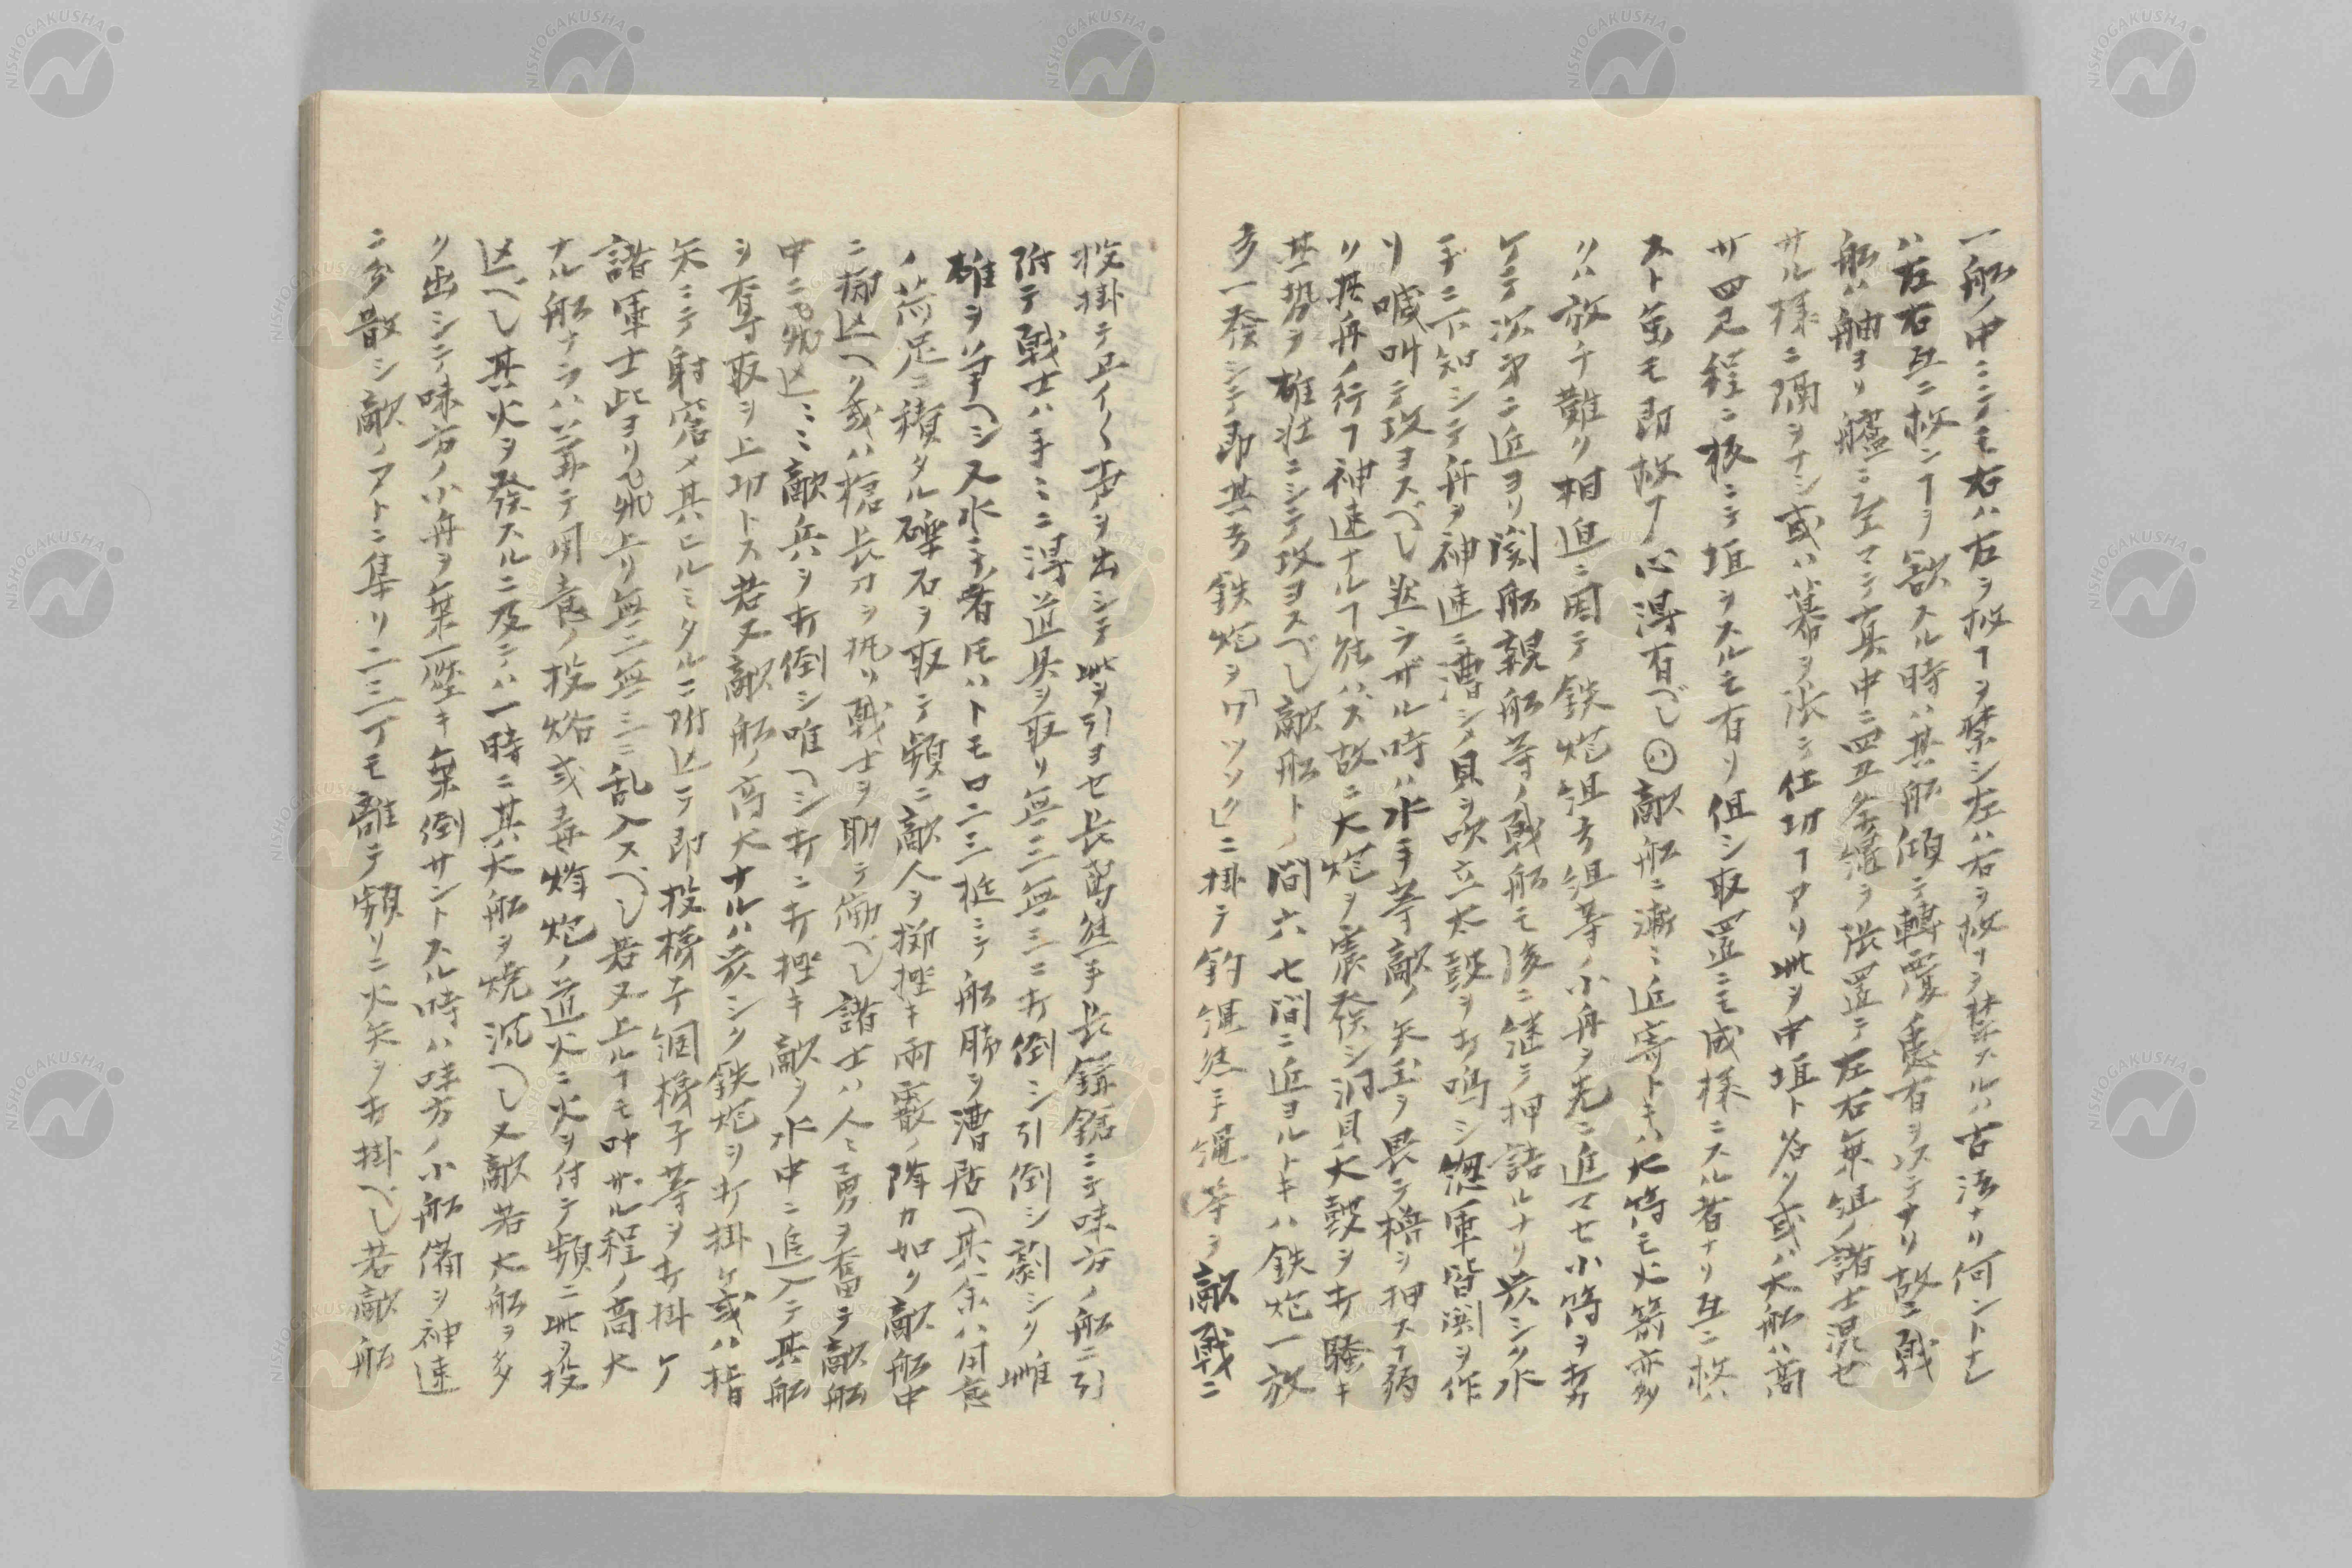 一船ノ中ニテモ右ハ左ヲ救フヲ禁シ左ハ右ヲ救フヲ禁スルハ古法ナリ何ントナレ
ハ左右互ニ救ンフヲ欲スル時ハ其船傾テ轉覆ノ患有ヲ以テナリ故ニ戦
船ハ舳ヨリ艫ニ至マテ真中ニ四五条縄ヲ張置テ左右乗組ノ諸士混セ
サル様ニ隔ヲナシ或ハ幕ヲ張テ仕切フアリ此ヲ中垣ト名ク或ハ大船ハ高
サ四尺程ニ板ニテ垣ヲスルモ有リ但シ取置ニモ成様ニスル者ナリ互ニ救ハ
スト虽モ即救フ心得有べし ○敵船ニ漸ミ近寄トキハ大筒モ火箭亦
リハ放チ難ク相迫ニ因テ鉄炮組弓組等ノ小舟ヲ先ニ進マセ小筒ヲ打カ
ケテ次第ニ近ヨリ関船親船等ノ戦船モ後ニ継テ押詰ルナリ炭シク水
手ニ下知シテ舟ヲ神速ニ漕シメ貝ヲ吹立太鼓ヲ打鳴シ惣軍皆関ヲ作
リ喊叫テ攻ヨスべし然ラザル時ハ水手等敵ノ矢玉ヲ畏テ櫓ヲ押スフ弱
リ其舟ノ行フ神速ナルフ能ハズ故ニ大炮ヲ震發シ洞貝ノ大鼓ヲ打騒キ
其勢ヲ雄壮ニシテ攻ヨスべし敵船トノ間六七間ニ近ヨルトキハ鉄炮一放
弓一發シテ即其弓鉄炮ヲ「ワツソク」ニ掛テ釣縄熊手縄等ヲ敵戦ニ
投掛テヱイ〱声ヲ出シテ此ヲ引ヨセ長蔦熊手長鎌鎗ニテ味方ノ船ニ引
附テ戦士ハ手ミニ得道具ヲ取リ無二無三ニ打倒シ引倒シ劇シク雌
雄ヲ爭ヘシ又水手ノ者氏ハトモロ二三梃ニテ船ノ肺ヲ漕居ヘ其余ハ用意
ノ荷足ニ積タル礫石ヲ取テ頻ニ敵人ヲ擲挫キ雨霰ノ降カ如ク敵船中
ニ擲込ヘク或ハ槍長刀ヲ執リ戦士ヲ助テ働べし諸士ハ人ミ勇ヲ奮テ敵船
中ニ飛込ミミ敵兵ヲ打倒シ唯ヘシ打ニ打挫キ敵ヲ水中ニ追入テ其船
ヲ奪取ヲ上功トス若又敵船ノ高大ナルハ炭シク鉄炮ヲ打掛ケ或ハ指
矢ニテ射窘メ其ヒルミタルニ附込テ即投梯子綱梯子等ヲ打掛ケ
諸軍士此ヨリ飛上リ無二無三ニ乱入スべし若又上ルフモ叶サル程ノ高大
ナル船ナラハ兼テ用意ノ投焔或毒烽炮ノ道火ニ火ヲ付テ頻ニ此ヲ投
込べし其火ヲ發スルニ及テハ一時ニ其大船ヲ焼沉べし又敵若大船ヲ多
ク出シテ味方ノ小舟ヲ乗壓キ乗倒サントスル時ハ味方ノ小船備ヲ神速
ニ分散シ敵ノアトニ集リ二三丁モ離テ頻リニ火矢ヲ打掛べし若敵船